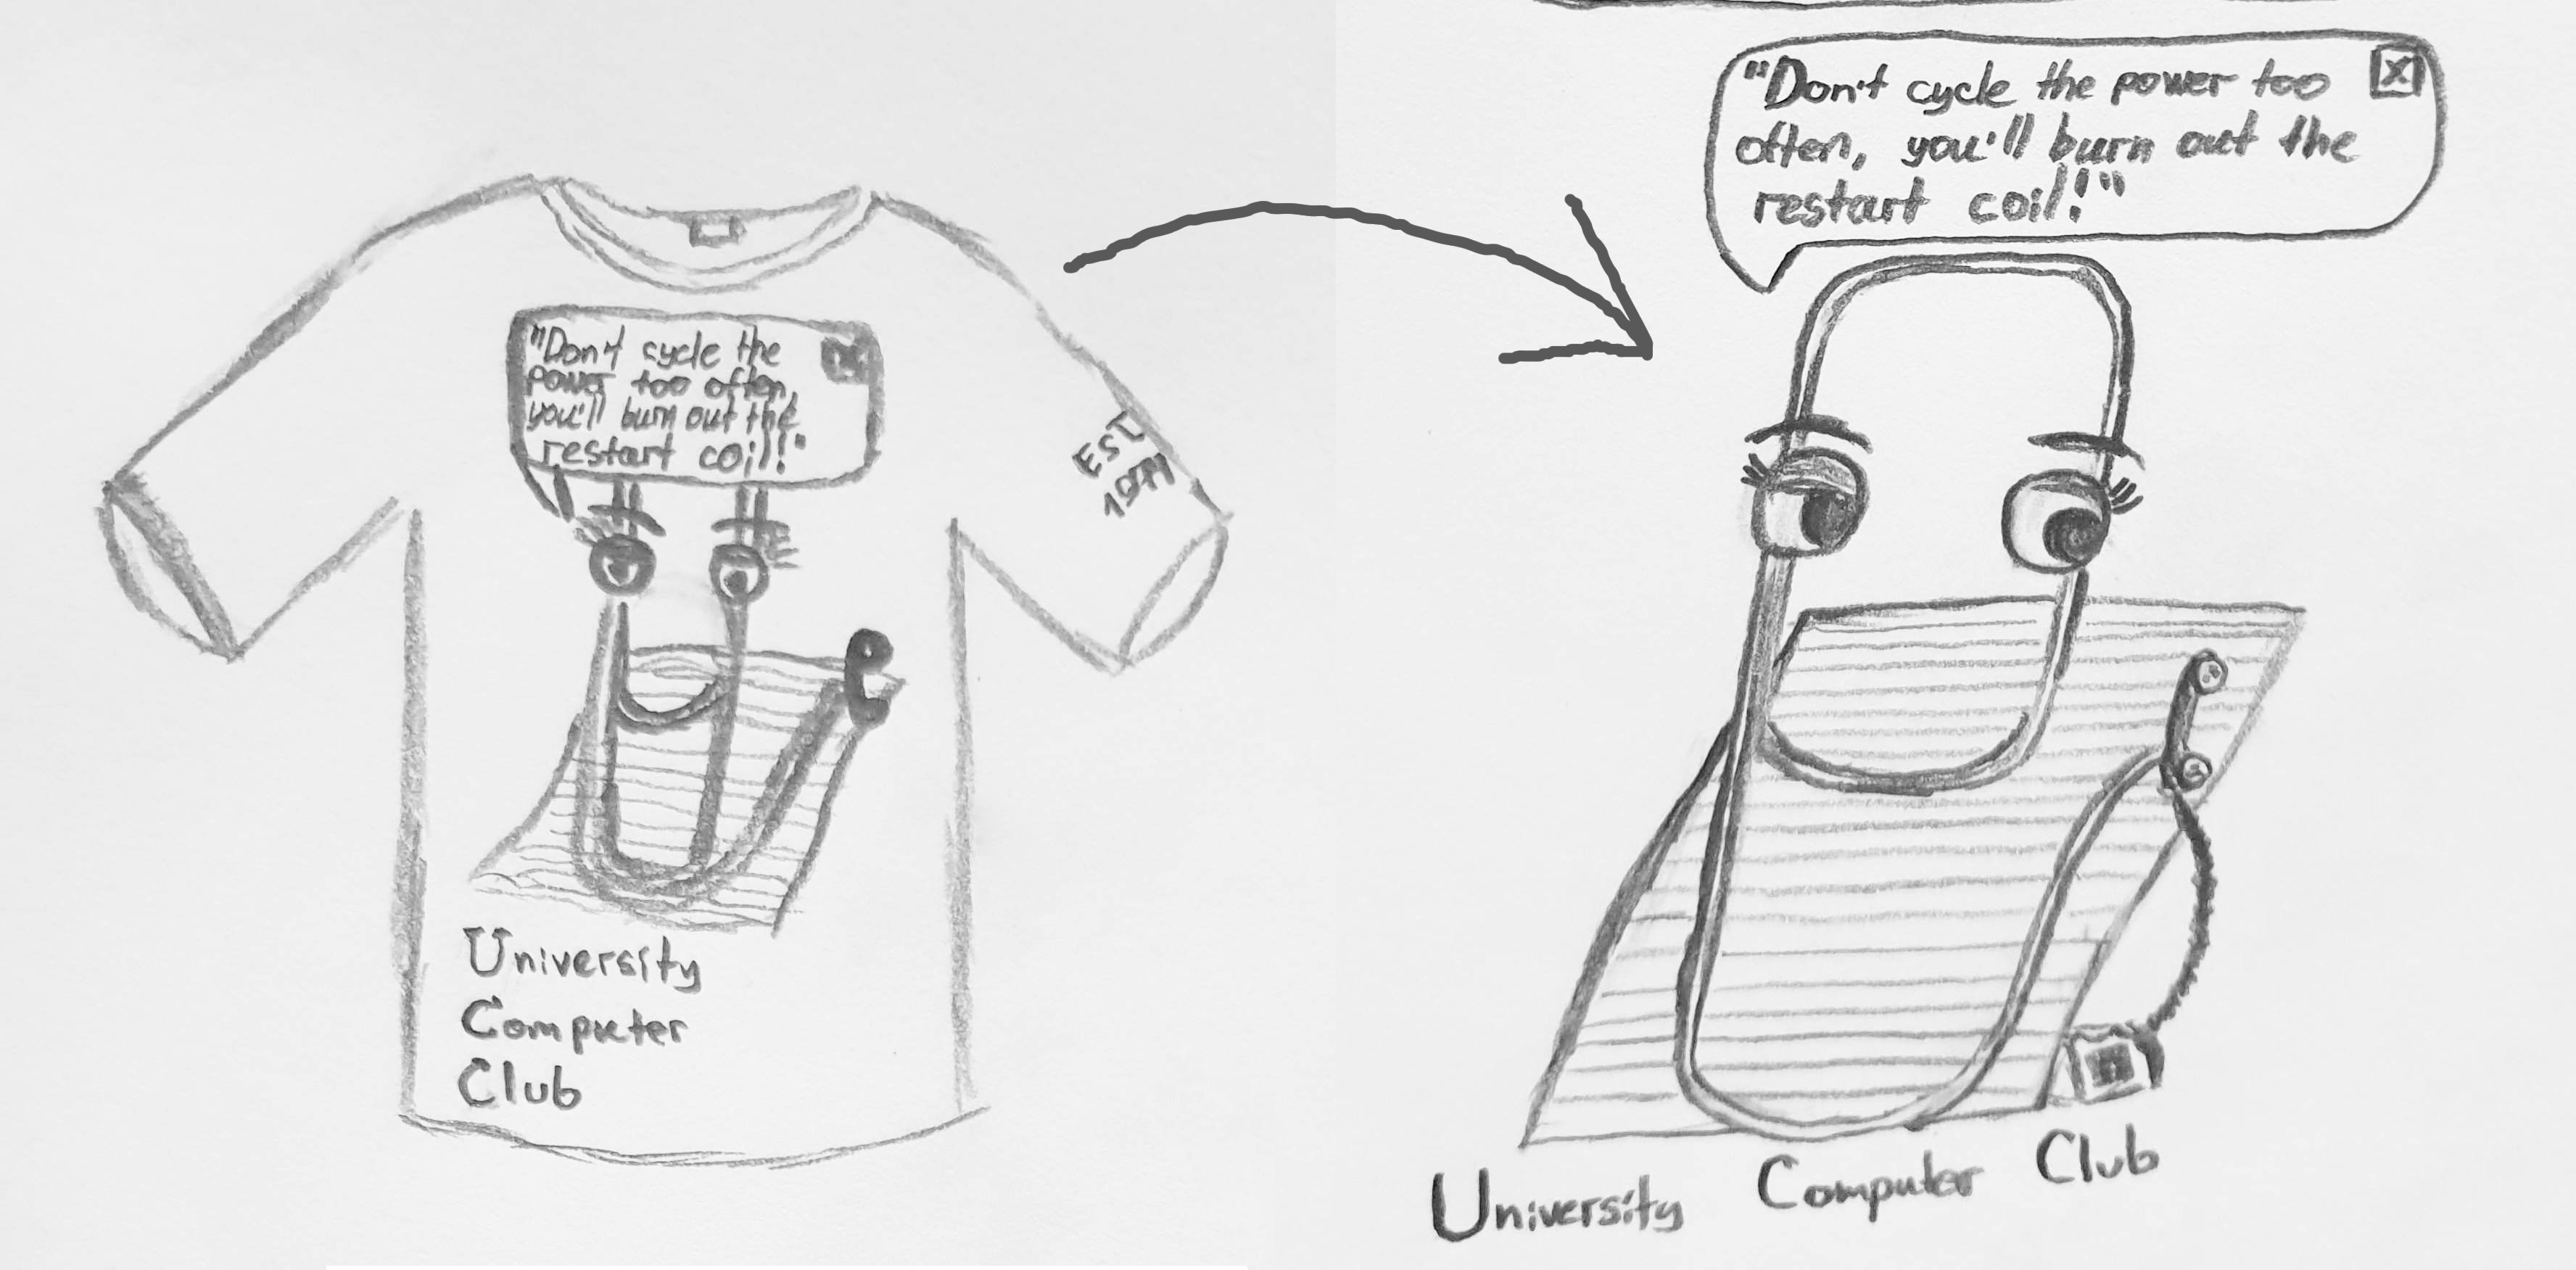 "Don't cycle the
power too often,
you'll burn out the
restart coil!"
EST
University
Computer
Club
"Don't cycle the power too
often, you'll burn out the
restart coil!"
University Computer Club